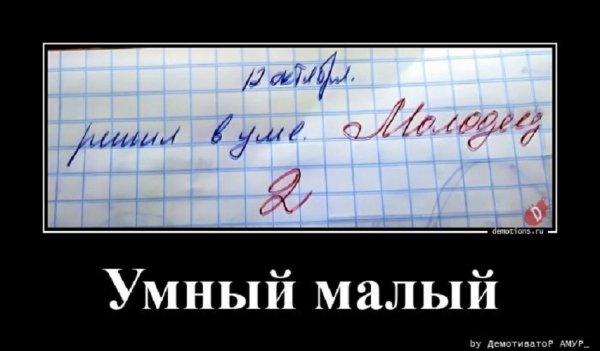 12 октября.
решил в уме. Молодец
2
demotions.ru
Умный малый
by ДемотиватоР АМУР_